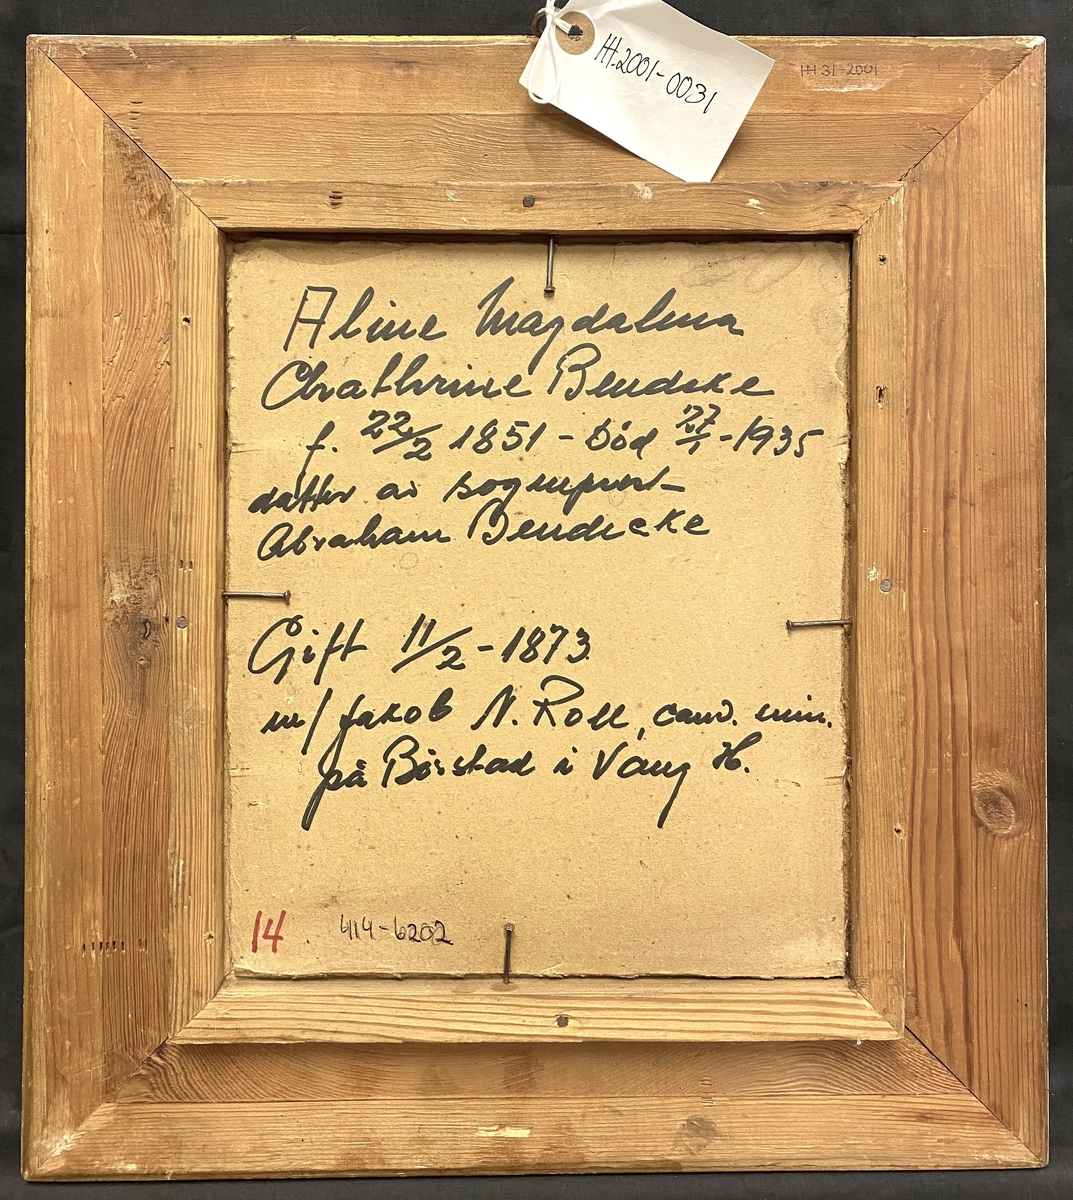 HH.2001-0031
HH 31-2001
Aline Magdalena
Chathrine Bendeke
f. 22/2 1851 - Død 27/1 - 1935
datter av sogneprest
Abraham Bendecke
Gift 11/2 - 1873
m/ Jakob N. Roll, cand. min.
på Børstad i Vang H.
14 414-6202